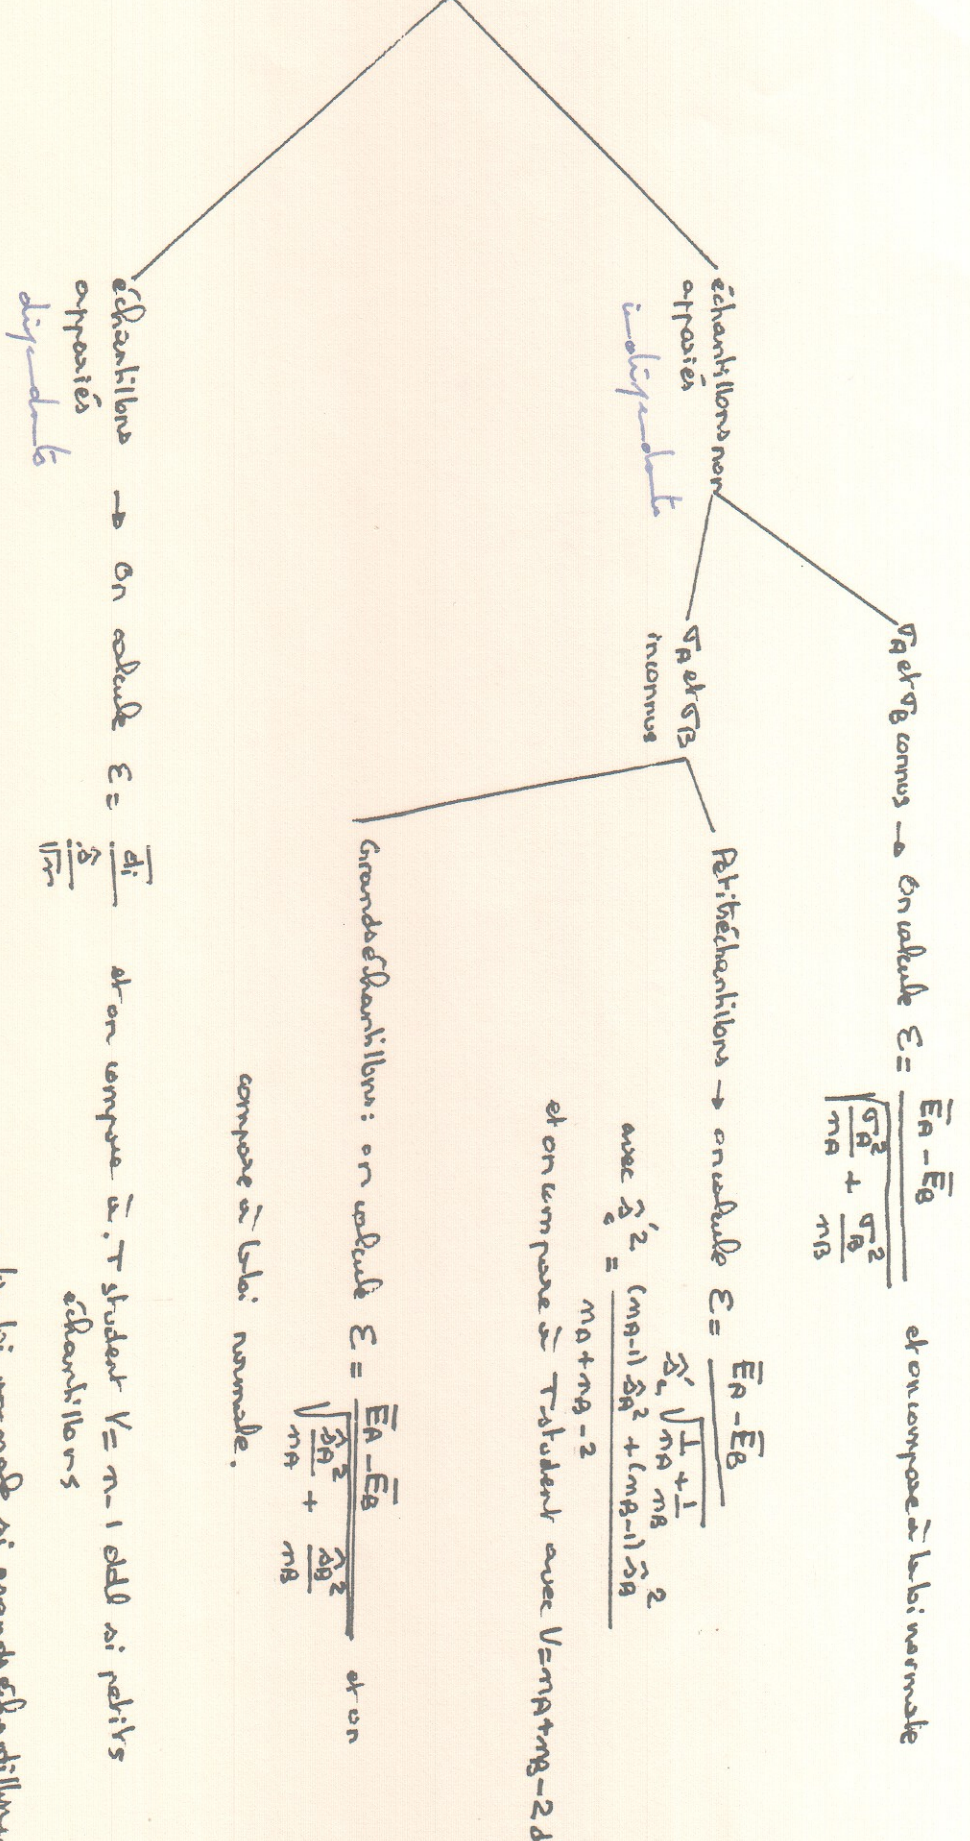 échantillons non
appariés
indépendants
σA et σB connus → On calcule ε = (E̅A - E̅B) / √(σA²/nA + σB²/nB) et on compare à la loi normale
σA et σB
inconnus
Petits échantillons → on calcule ε = (E̅A - E̅B) / (ŝ'c √(1/nA + 1/nB))
avec ŝ'c² = ((nA-1) ŝA² + (nB-1) ŝB²) / (nA + nB - 2)
et on compare à T student avec V = nA + nB - 2 d
Grands échantillons : on calcule ε = (E̅A - E̅B) / √(ŝA²/nA + ŝB²/nB) et on
compare à la loi normale.
échantillons
appariés
dépendants
→ On calcule ε = d̅i / (ŝ/√n) et on compare à . T student V = n - 1 ddl si petits
échantillons
la loi normale si grands échantillons